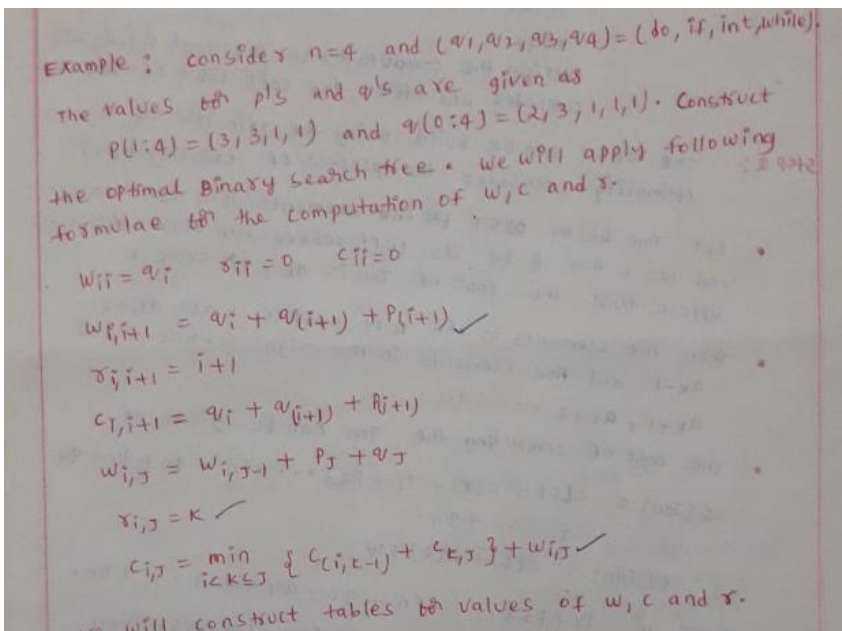 Example : consider n=4 and (q1,q2,q3,q4)=(do, if, int, while).
The values for p's and q's are given as
P(1:4) = (3,3,1,1) and q(0:4) = (2,3,1,1,1). Construct
the optimal Binary search tree. We will apply following
formulae for the computation of w, c and r.
Wii = qi rii = 0 cii = 0
Wi,i+1 = qi + q(i+1) + P(i+1) ✓
ri,i+1 = i+1
ci,i+1 = qi + q(i+1) + P(i+1)
Wi,J = Wi,J-1 + PJ + qJ
ri,J = K ✓
ci,J = min i<K≤J { c(i,k-1) + ck,J } + wi,J ✓
will construct tables for values of w, c and r.